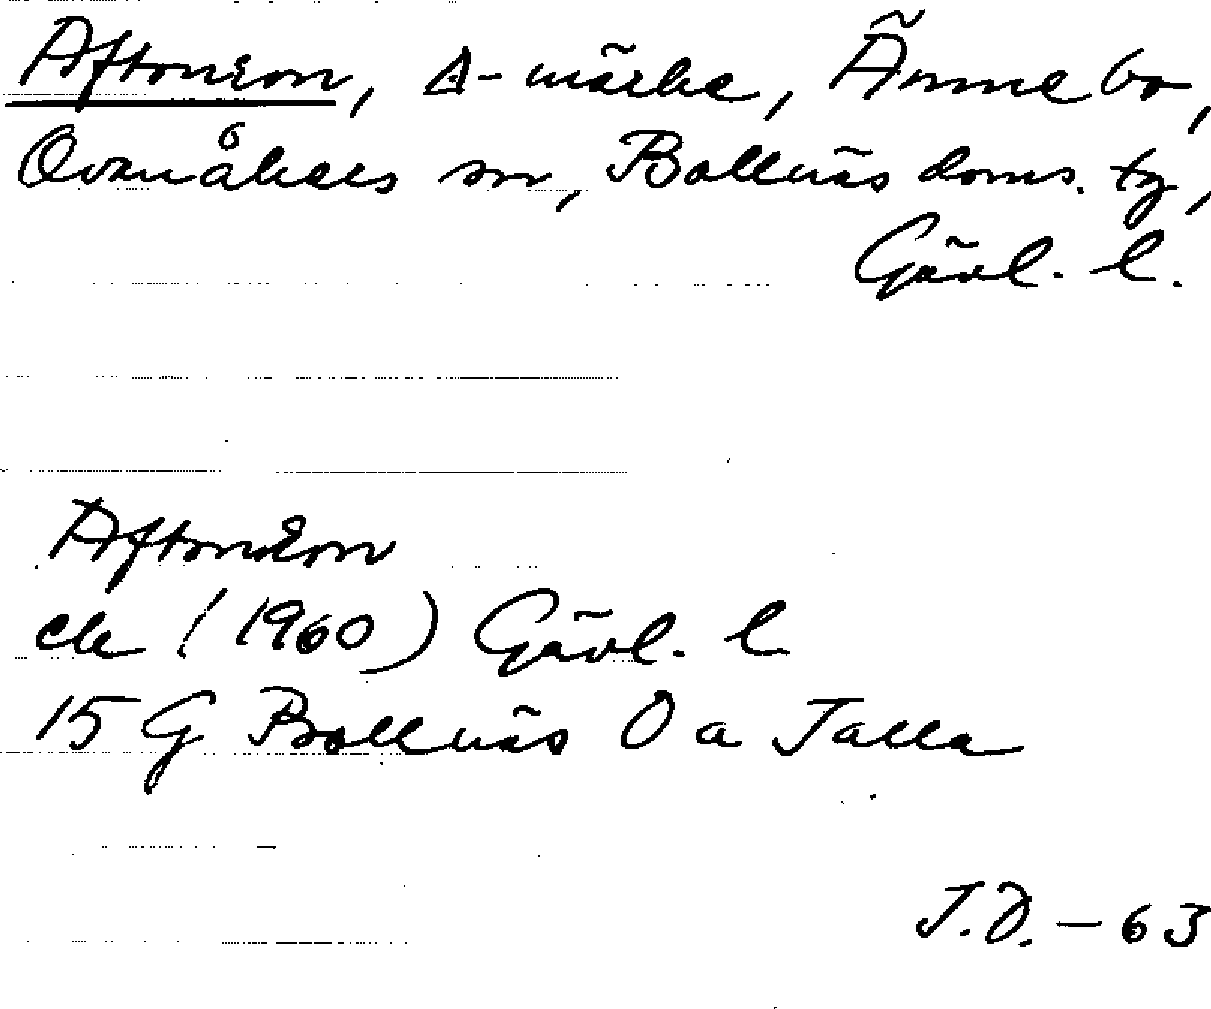 Aftonron, Δ-märke, Ämnebo,
Ovanåkers sn, Bollnäs doms. tg,
Gävl. l.
Aftonron
ek (1960) Gävl. l
15 G Bollnäs 0 a Talla
J.D. – 63